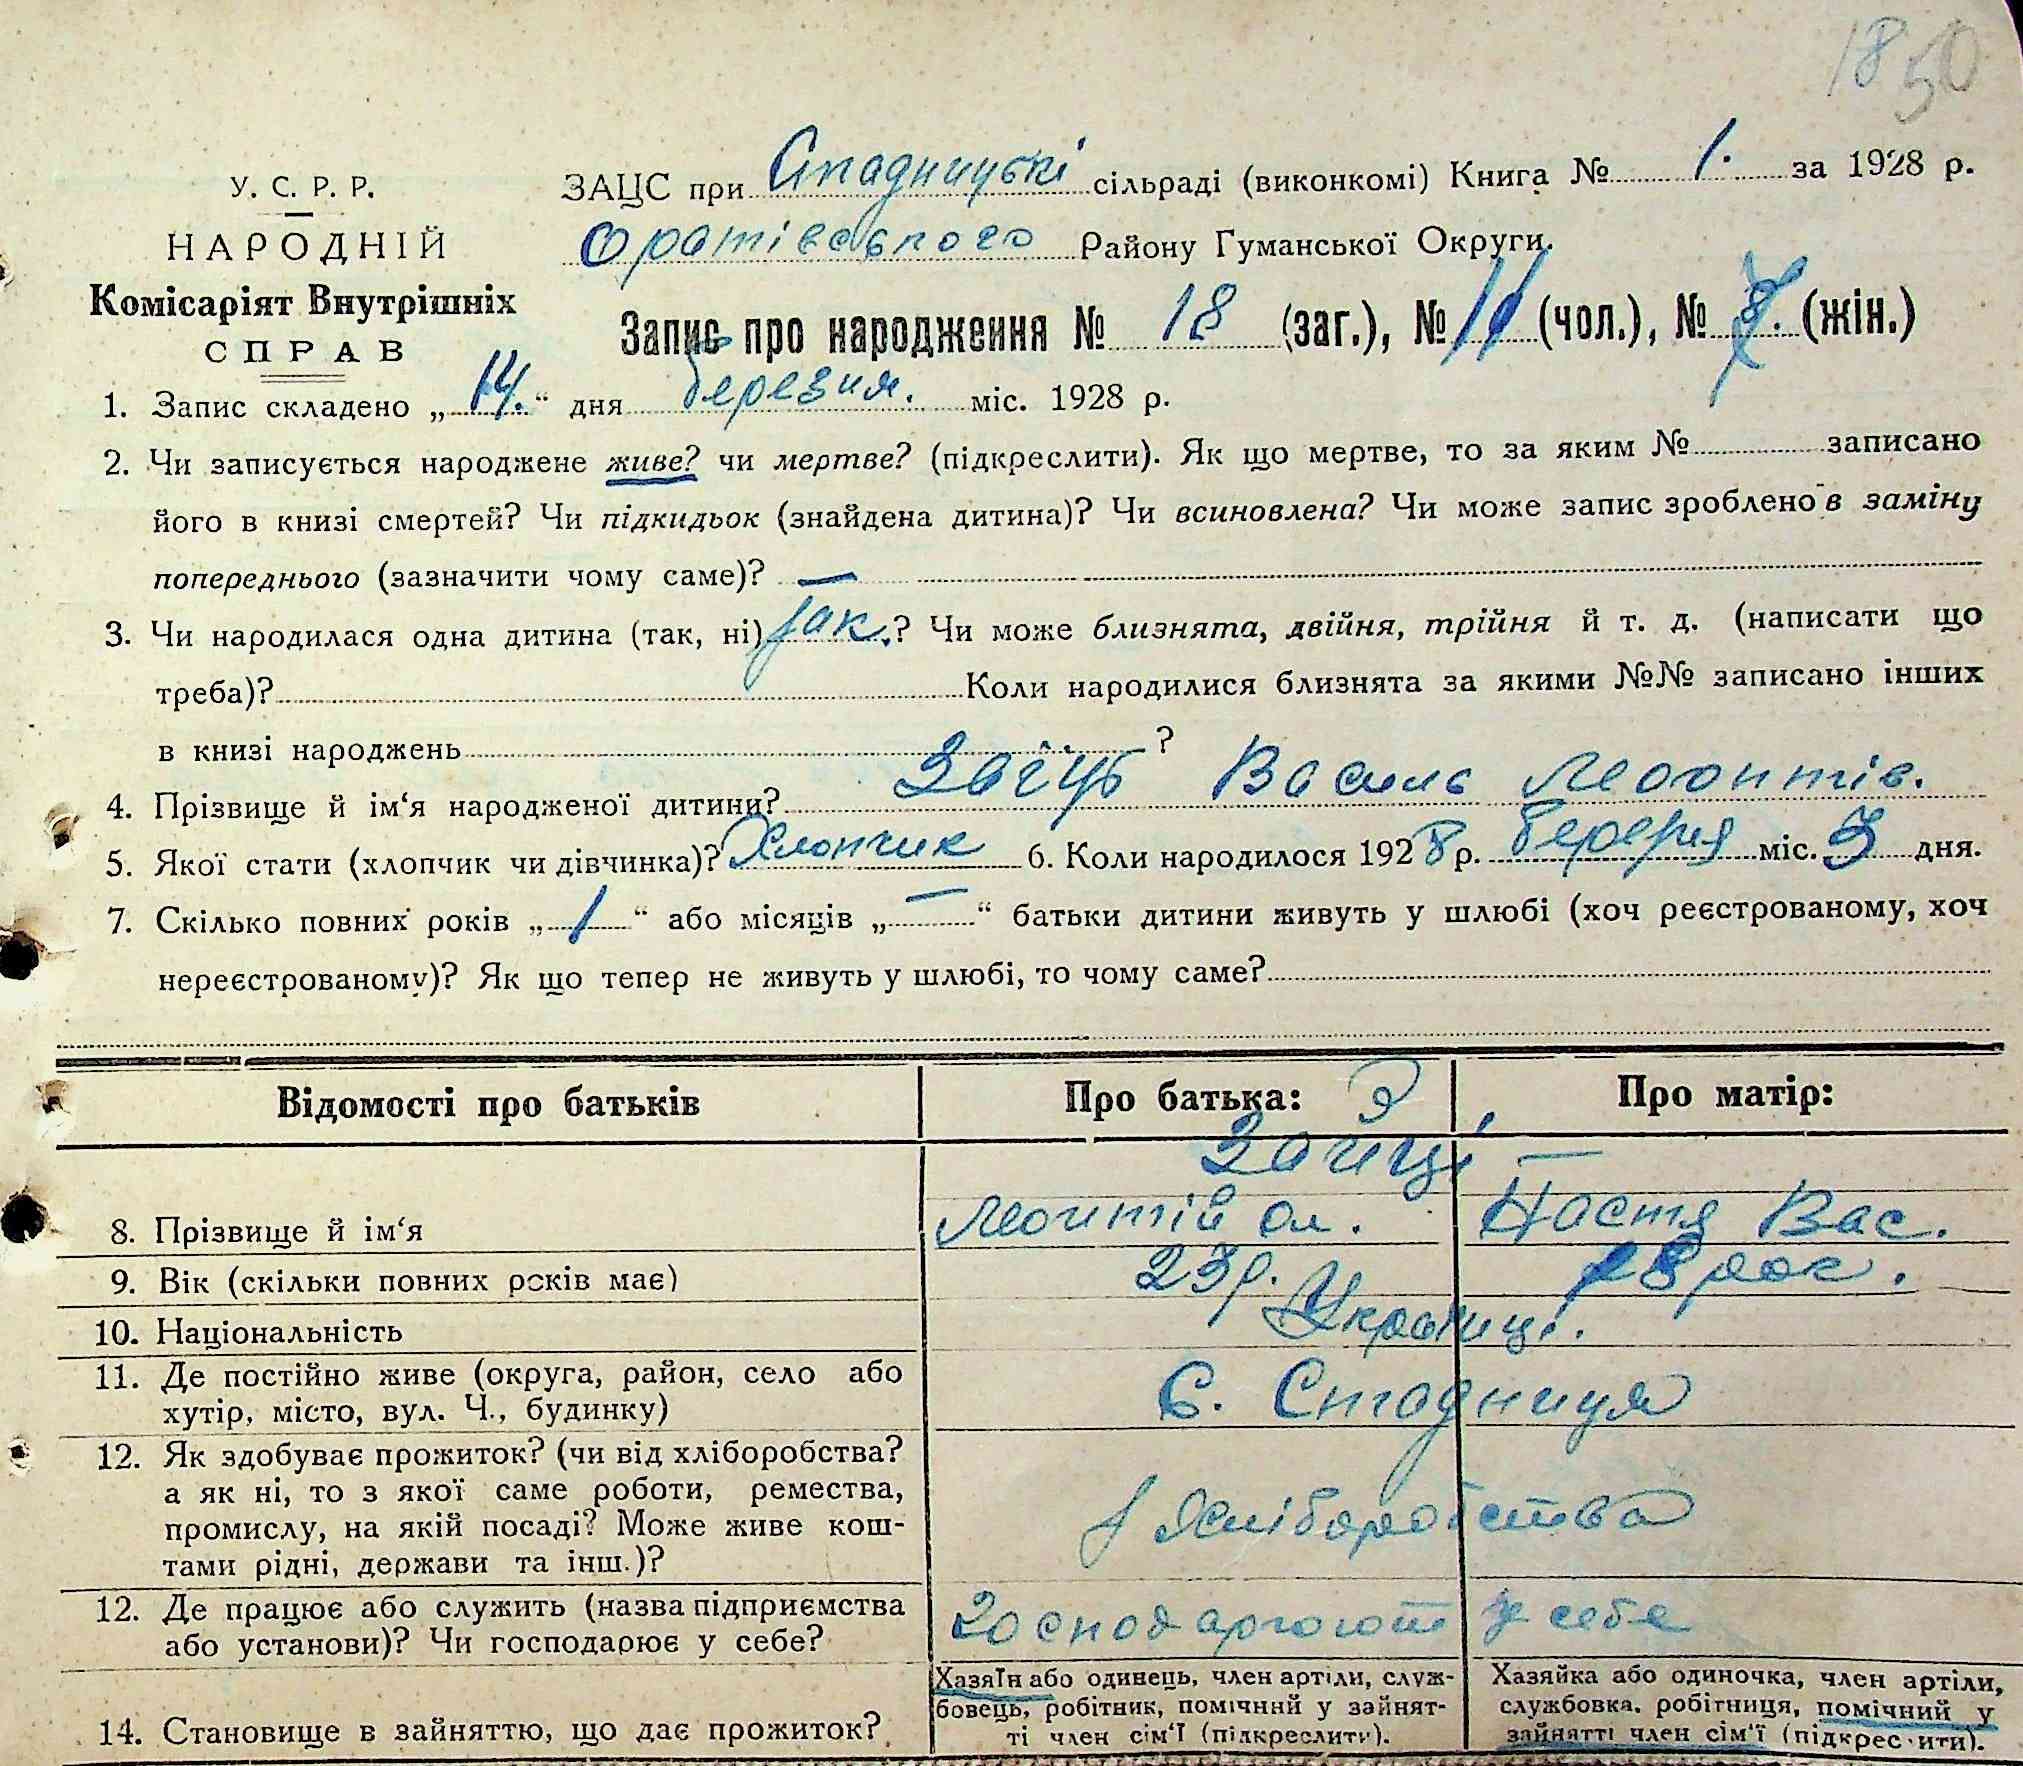 1850
У. С. Р. Р.
НАРОДНІЙ
Комісаріят Внутрішніх
СПРАВ
ЗАЦС при Стадницькі сільраді (виконкомі) Книга № 1. за 1928 р.
Оратівського Району Гуманської Округи.
Запис про народження № 18 (заг.), № 11 (чол.), № (жін.)
1. Запис складено „ 14. “ дня березня. міс. 1928 р.
2. Чи записується народжене живе? чи мертве? (підкреслити). Як що мертве, то за яким № записано
його в книзі смертей? Чи підкидьок (знайдена дитина)? Чи всиновлена? Чи може запис зроблено в заміну
попереднього (зазначити чому саме)? —
3. Чи народилася одна дитина (так, ні) так.? Чи може близнята, двійня, трійня й т. д. (написати що
треба)? Коли народилися близнята за якими №№ записано інших
в книзі народжень ?
4. Прізвище й ім‘я народженої дитини? Заїць Василь Леонтів.
5. Якої стати (хлопчик чи дівчинка)? Хлопчик 6. Коли народилося 1928 р. березня міс. 3 дня.
7. Скілько повних років „ 1 “ або місяців „ — “ батьки дитини живуть у шлюбі (хоч реєстрованому, хоч
нереєстрованому)? Як що тепер не живуть у шлюбі, то чому саме?
Відомості про батьків Про батька: Про матір:
Заїці —
8. Прізвище й ім‘я Леонтій Ол. Настя Вас.
9. Вік (скільки повних років має) 23 р. 18 рок.
10. Національність Українці.
11. Де постійно живе (округа, район, село або
хутір, місто, вул. Ч., будинку) С. Стадниця
12. Як здобуває прожиток? (чи від хліборобства?
а як ні, то з якої саме роботи, ремества,
промислу, на якій посаді? Може живе кош-
тами рідні, держави та інш.)? Хліборобства
12. Де працює або служить (назва підприємства
або установи)? Чи господарює у себе? Господарюють у себе
14. Становище в зайняттю, що дає прожиток?
Хазяїн або одинець, член артіли, служ-
бовець, робітник, помічний у зайнят-
ті член сім‘ї (підкреслити).
Хазяйка або одиночка, член артіли,
службовка, робітниця, помічний у
зайнятті член сім‘ї (підкреслити).